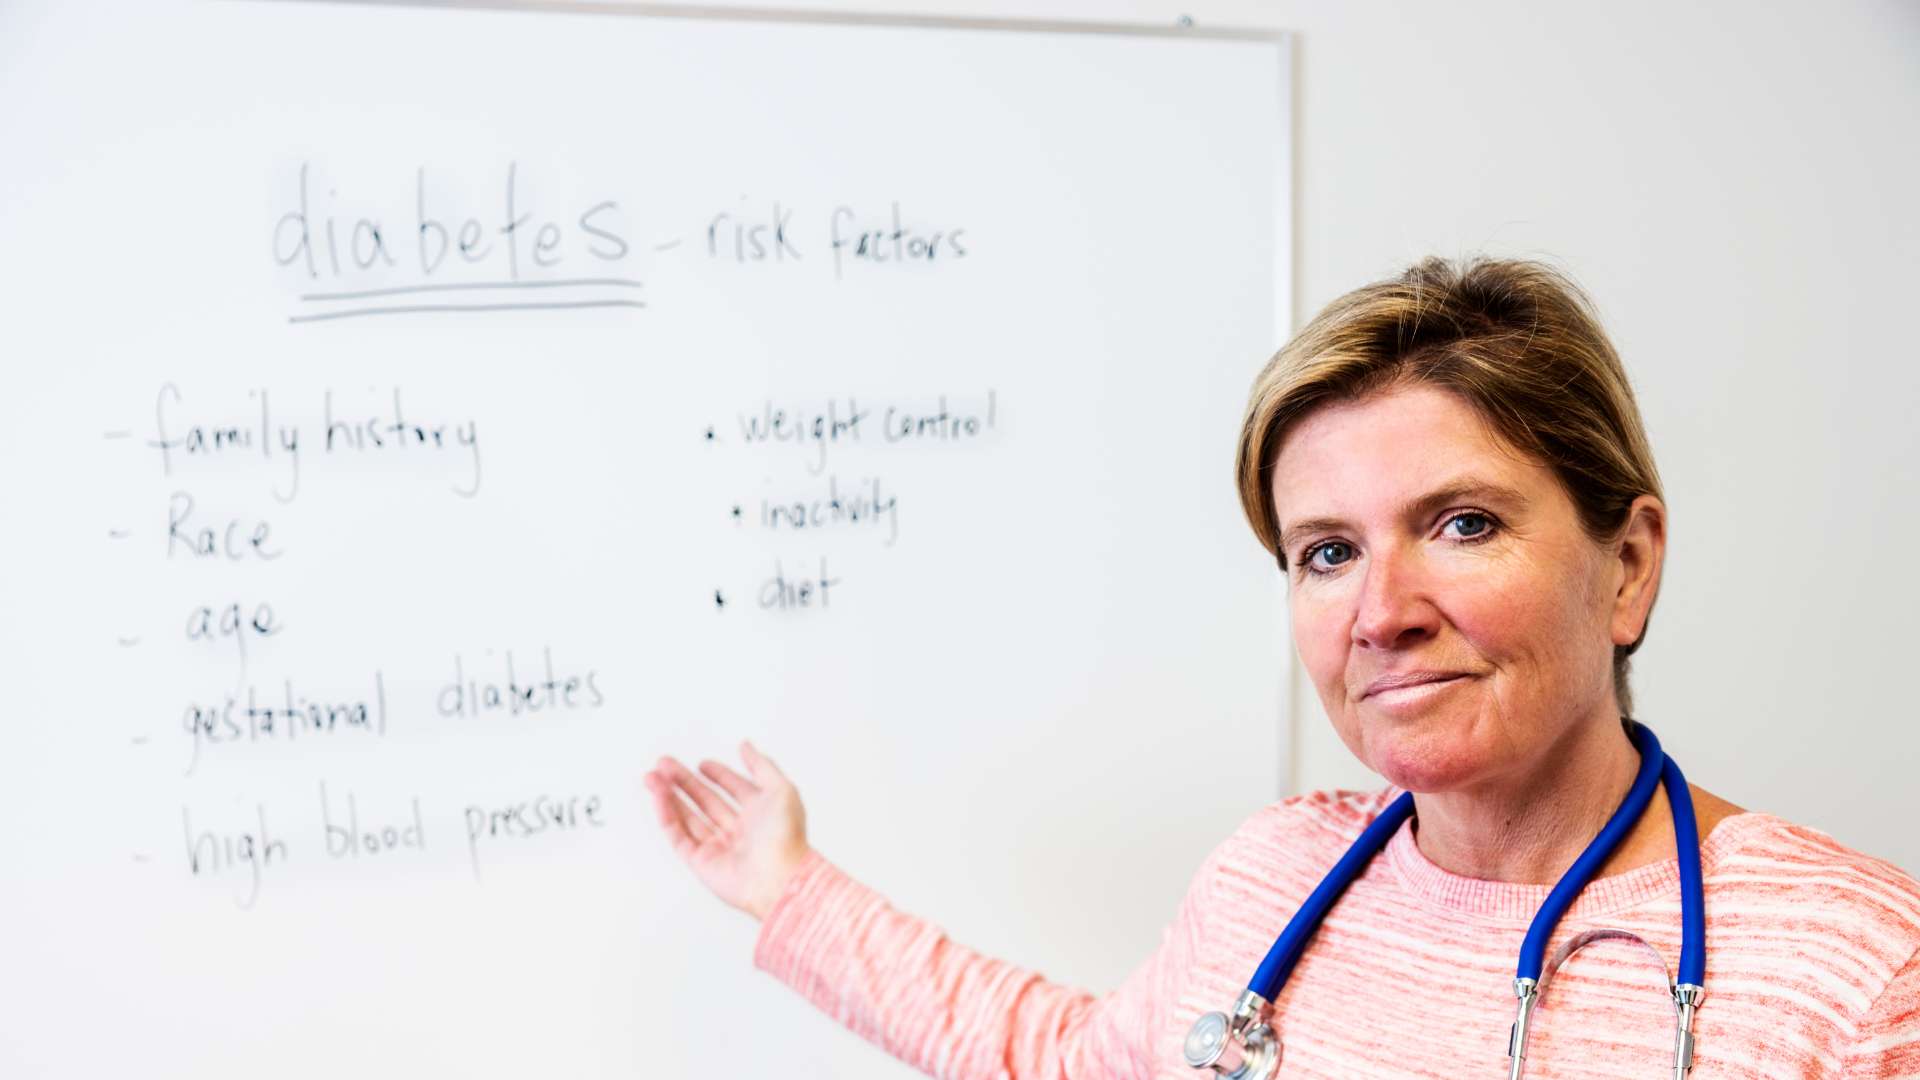 diabetes - risk factors
- family history
- Race
- age
- gestational diabetes
- high blood pressure
• weight control
• inactivity
• diet